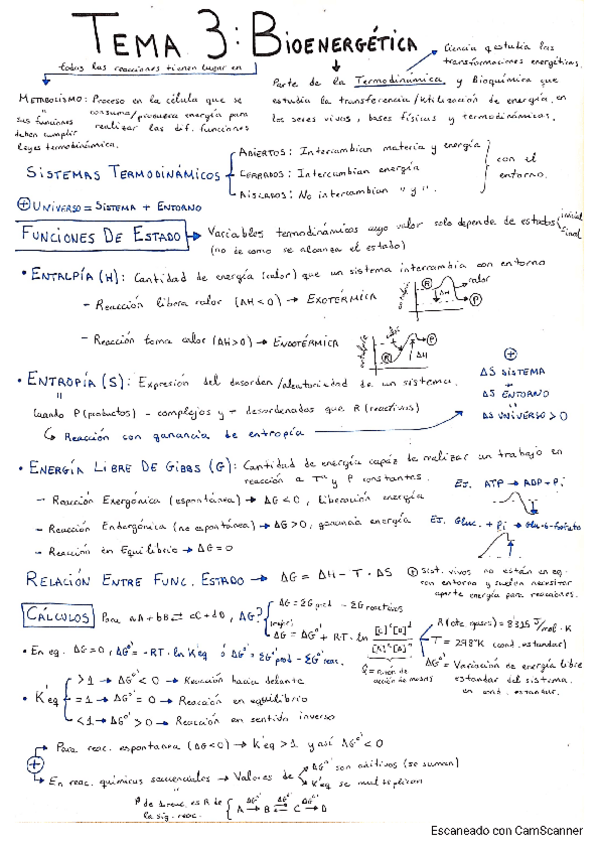 TEMA 3: BIOENERGÉTICA
Ciencia q estudia las
transformaciones energéticas.
todas las reacciones tienen lugar en
Parte de la Termodinámica y Bioquímica que
estudia la transferencia/utilización de energía en
los seres vivos, bases físicas y termodinámicas.
METABOLISMO: Proceso en la célula que se
consuma/ energía para
realizar las dif. funciones
sus funciones
deben cumplir
leyes termodinámica.
SISTEMAS TERMODINÁMICOS
ABIERTOS: Intercambian materia y energía
CERRADOS: Intercambian energía
AISLADOS: No intercambian " y ".
con el
entorno.
+ UNIVERSO = SISTEMA + ENTORNO
FUNCIONES DE ESTADO → Variables termodinámicas cuyo valor solo depende de estados inicial
final
(no de como se alcanza el estado)
• ENTALPÍA (H): Cantidad de energía (calor) que un sistema intercambia con entorno
- Reacción libera calor (ΔH<0) → EXOTÉRMICA
R calor
ΔH P
- Reacción toma calor (ΔH>0) → ENDOTÉRMICA
R ΔH P
• ENTROPÍA (S): Expresión del desorden/aleatoriedad de un sistema.
+
ΔS SISTEMA
ΔS ENTORNO
ΔS UNIVERSO > 0
Cuando P (productos) - complejos y + desordenados que R (reactivos)
↳ Reacción con ganancia de entropía
• ENERGÍA LIBRE DE GIBBS (G): Cantidad de energía capaz de realizar un trabajo en
reacción a Tª y P constantes.
- Reacción Exergónica (espontánea) → ΔG<0, liberación energía
EJ. ATP → ADP + Pi
- Reacción Endergónica (no espontánea) → ΔG>0, ganancia energía
EJ. Gluc. + Pi → Glu-6-fosfato
- Reacción en Equilibrio → ΔG=0
RELACIÓN ENTRE FUNC. ESTADO → ΔG = ΔH - T · ΔS
+ sist. vivos no están en eq.
con entorno y suelen necesitar
aporte energía para reacciones.
CÁLCULOS Para aA + bB ⇄ cC + dD, ΔG?
ΔG = ΣG prod - ΣG reactivos
(mejor)
ΔG = ΔG°' + RT · ln [C]ᶜ[D]ᵈ / [A]ᵃ[B]ᵇ
R (cte gases) = 8'315 J/mol · K
T = 298°K (cond. estandar)
ΔG°' = Variación de energía libre
estandar del sistema
en cond. estandar.
Q = razón de
acción de masas
• En eq. ΔG=0, ΔG°' = -RT · ln K'eq ó ΔG°' = ΣG°'prod - ΣG°'reac.
• K'eq
>1 → ΔG°' < 0 → Reacción hacia delante
=1 → ΔG°' = 0 → Reacción en equilibrio
<1 → ΔG°' > 0 → Reacción en sentido inverso
+
Para reac. espontanea (ΔG<0) → K'eq > 1 y así ΔG°' < 0
En reac. químicas secuenciales → Valores de
ΔG°' son aditivos (se suman)
K'eq se multiplican
P de 1 reac. es R de
la sig. reac.
A ΔG°' → B ΔG°' → C ΔG°' → D
Escaneado con CamScanner